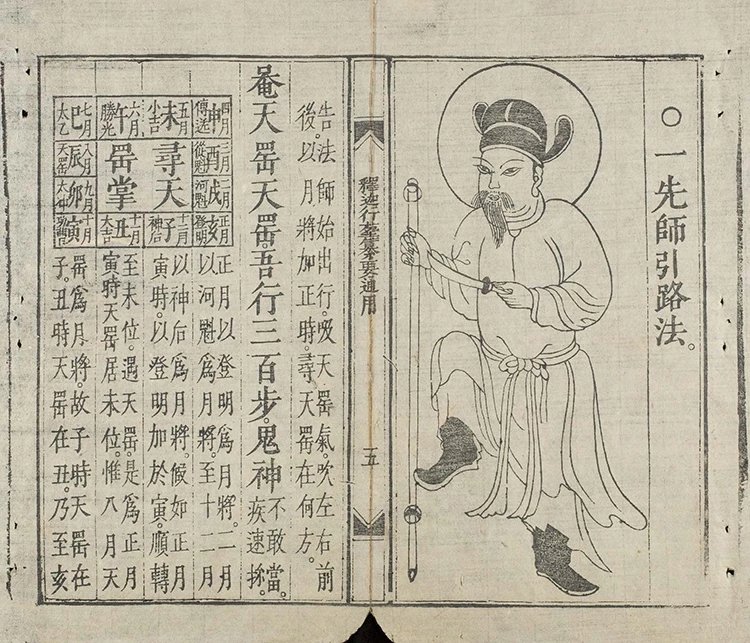 ○一先師引路法。
釋迦行臺纂要通用
五
告法師始出行。吸天罡氣。吹左右前
後。以月將加正時。尋天罡在何方。
天罡天罡。吾行三百步。鬼神不敢當。
疾速
四月申傳送
三月酉從魁
二月戌河魁
正月亥登明
五月未小吉
尋天
十二月子神后
六月午勝光
罡掌
十一月丑大吉
七月巳太乙
八月辰天罡
九月卯太冲
十月寅功曹
正月以登明爲月將。二月
以河魁爲月將。至十二月
以神后爲月將。候如正月
寅時。以登明加於寅。順轉
至未位。遇天罡。是爲正月
寅時天罡居未位。惟八月天
罡爲月將。故子時天罡在
子。丑時天罡在丑。乃至亥